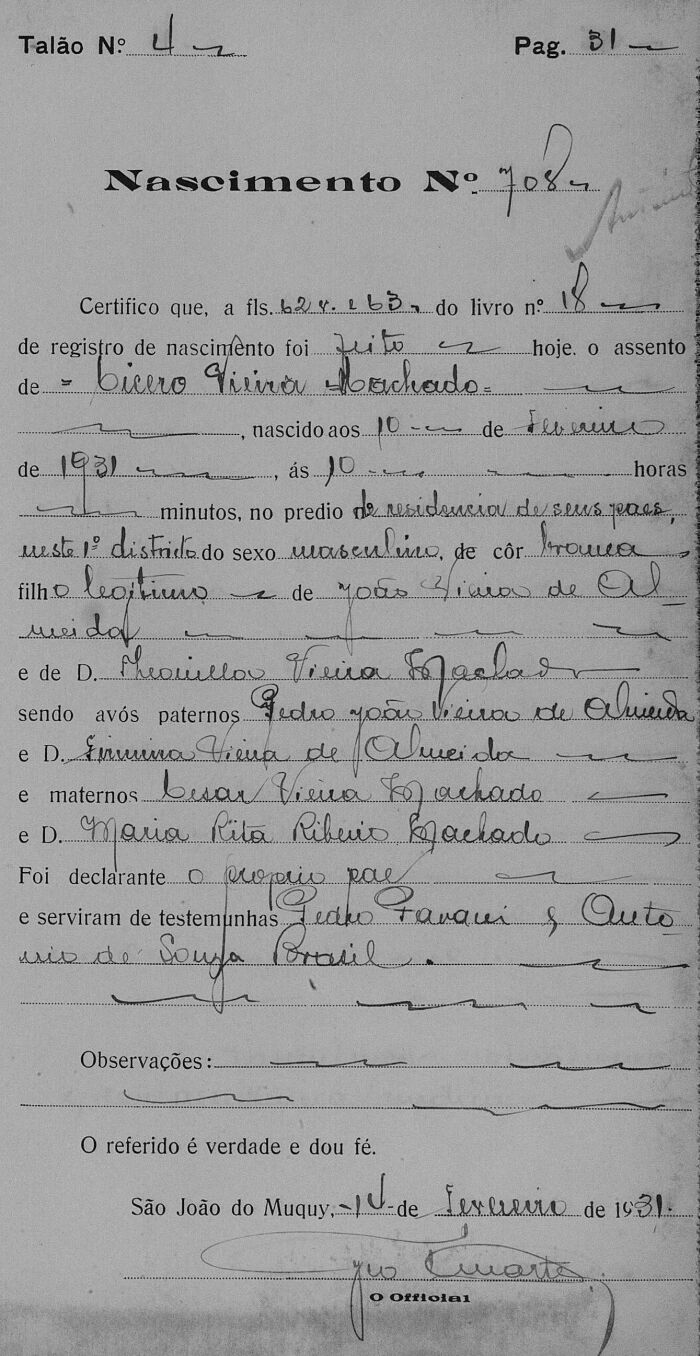 Talão N.º 4 Pag. 31
Nascimento Nº 708
Certifico que, a fls. 62v. e 63, do livro nº 18
de registro de nascimento foi feito hoje. o assento
de = Cicero Vieira Machado =
, nascido aos 10 de Fevereiro
de 1931 , ás 10 horas
minutos, no predio de residencia de seus paes,
neste 1º districto do sexo masculino, de côr branca,
filho legitimo de João Vieira de Al-
meida
e de D. Vieira Machado
sendo avós paternos Pedro João Vieira de Almeida
e D. Firmina Vieira de Almeida
e maternos Cesar Vieira Machado
e D. Maria Rita Ribeiro Machado
Foi declarante o proprio pae
e serviram de testemunhas Pedro & Anto
nio de Souza Brasil.
Observações:
O referido é verdade e dou fé.
São João do Muquy, -14- de Fevereiro de 1931.
Duarte
O Official